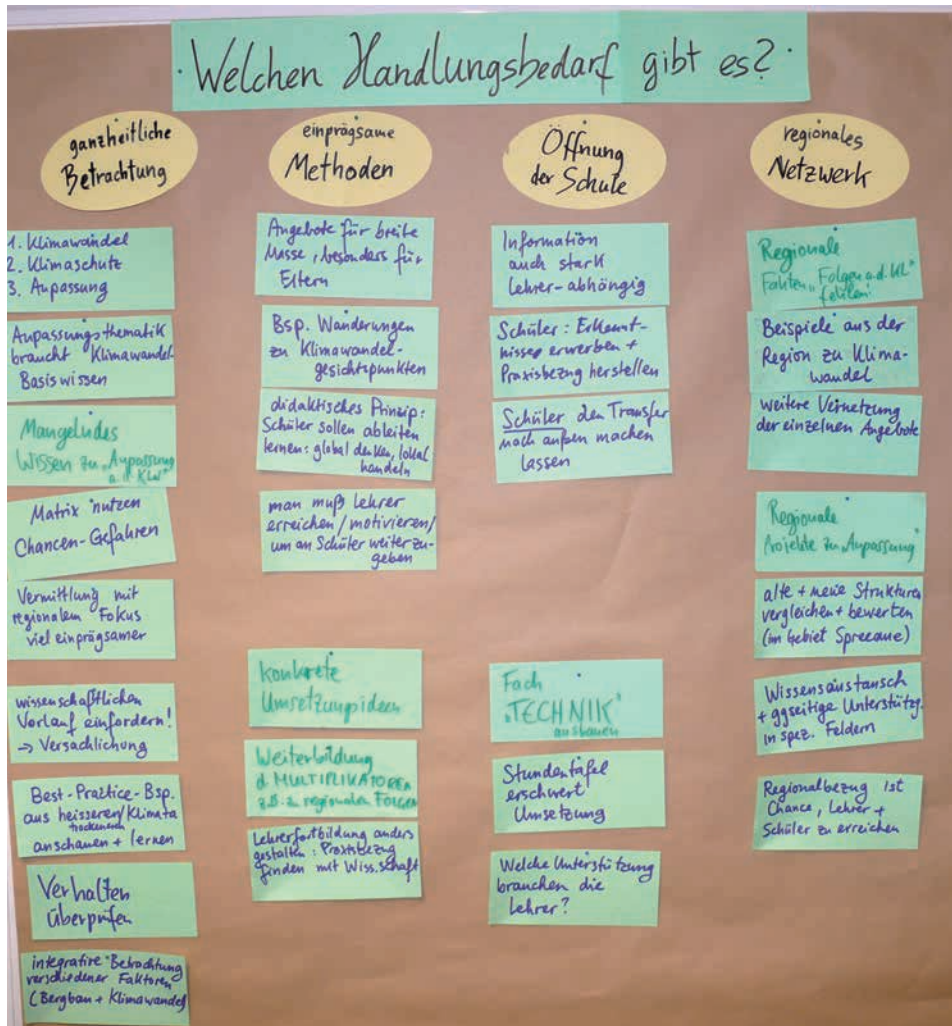 · Welchen Handlungsbedarf gibt es? ·
ganzheitliche
Betrachtung
1. Klimawandel
2. Klimaschutz
3. Anpassung
Anpassungsthematik
braucht Klimawandel-
Basiswissen
Mangelndes
Wissen zu „Anpassung
a. d. KLW"
Matrix nutzen
Chancen-Gefahren
Vermittlung mit
regionalem Fokus
viel einprägsamer
wissenschaftlichen
Vorlauf einfordern!
→ Versachlichung
Best-Practice-Bsp.
aus heisseren/Klimata
trockeneren
anschauen + lernen
Verhalten
überprüfen
integrative Betrachtung
verschiedener Faktoren
(Bergbau + Klimawandel)
einprägsame
Methoden
Angebote für breite
Masse, besonders für
Eltern
Bsp. Wanderungen
zu Klimawandel-
gesichtspunkten
didaktisches Prinzip:
Schüler sollen ableiten
lernen: global denken, lokal
handeln
man muß Lehrer
erreichen/motivieren/
um an Schüler weiter zu-
geben
Konkrete
Umsetzungsideen
Weiterbildung
d. MULTIPLIKATOREN
z.B. z. regionalen FOLGEN
Lehrerfortbildung anders
gestalten: Praxisbezug
finden mit Wiss.schaft
Öffnung
der Schule
Information
auch stark
Lehrer-abhängig
Schüler: Erkennt-
nisse erwerben +
Praxisbezug herstellen
Schüler den Transfer
nach außen machen
lassen
Fach
„TECHNIK"
ausbauen
Stundentafel
erschwert
Umsetzung
Welche Unterstützung
brauchen die
Lehrer?
regionales
Netzwerk
Regionale
Fakten „Folgen a. d. KL"
fehlen!
Beispiele aus der
Region zu Klima-
wandel
weitere Vernetzung
der einzelnen Angebote
Regionale
Projekte zu „Anpassung"
alte + neue Strukturen
vergleichen + bewerten
(im Gebiet Spreeaue)
Wissensaustausch
+ ggseitige Unterstützg.
in spez. Feldern
Regionalbezug ist
Chance, Lehrer +
Schüler zu erreichen